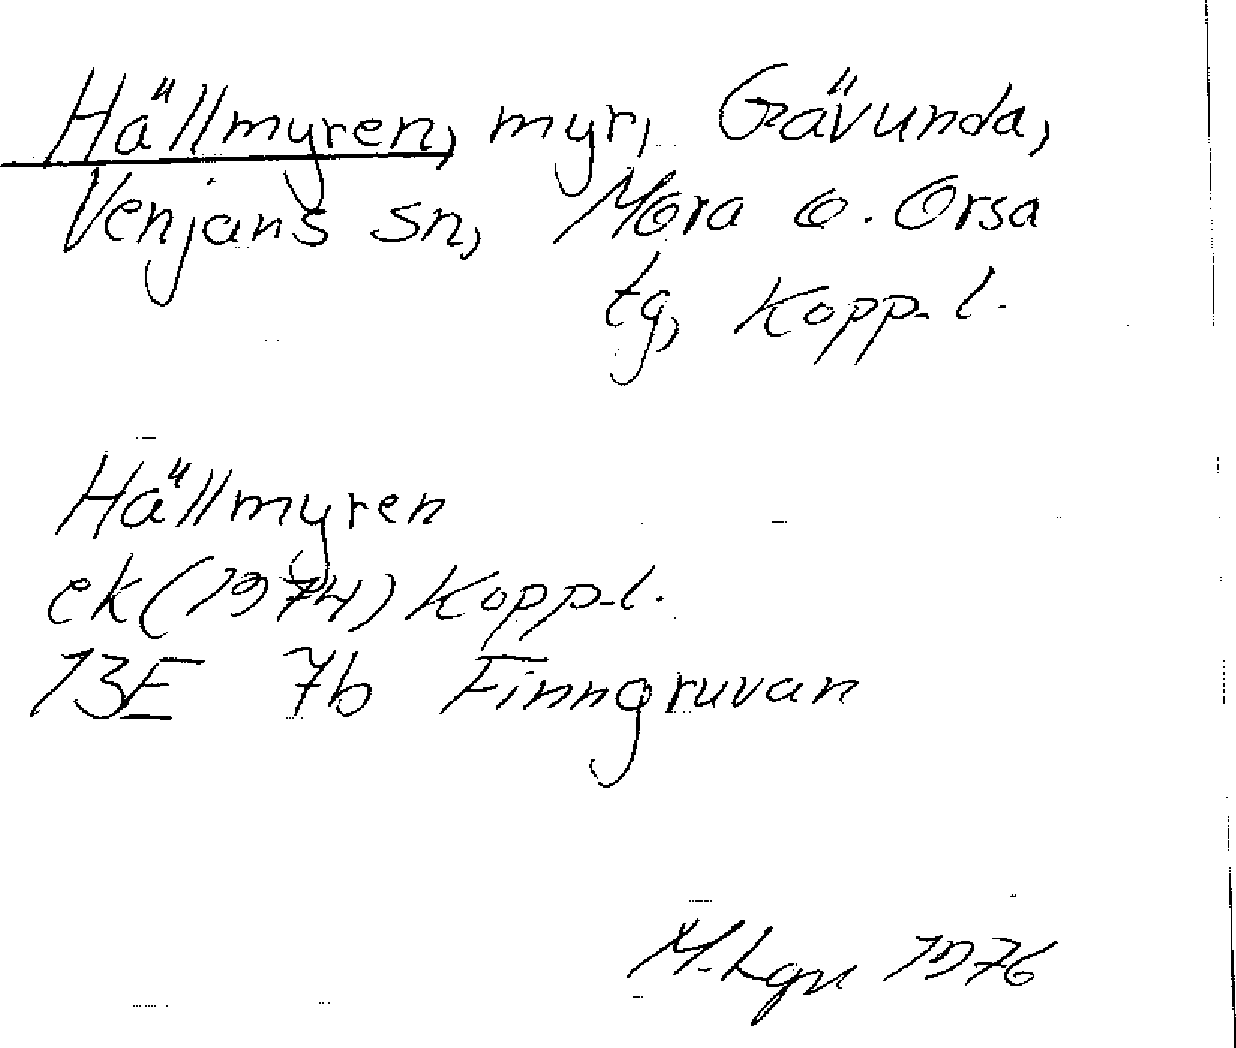 Hällmyren, myr, Gävunda,
Venjans sn, Mora o. Orsa
tg, Kopp. l.
Hällmyren
ek (1974) Kopp. l.
13E 7b Finngruvan
1976